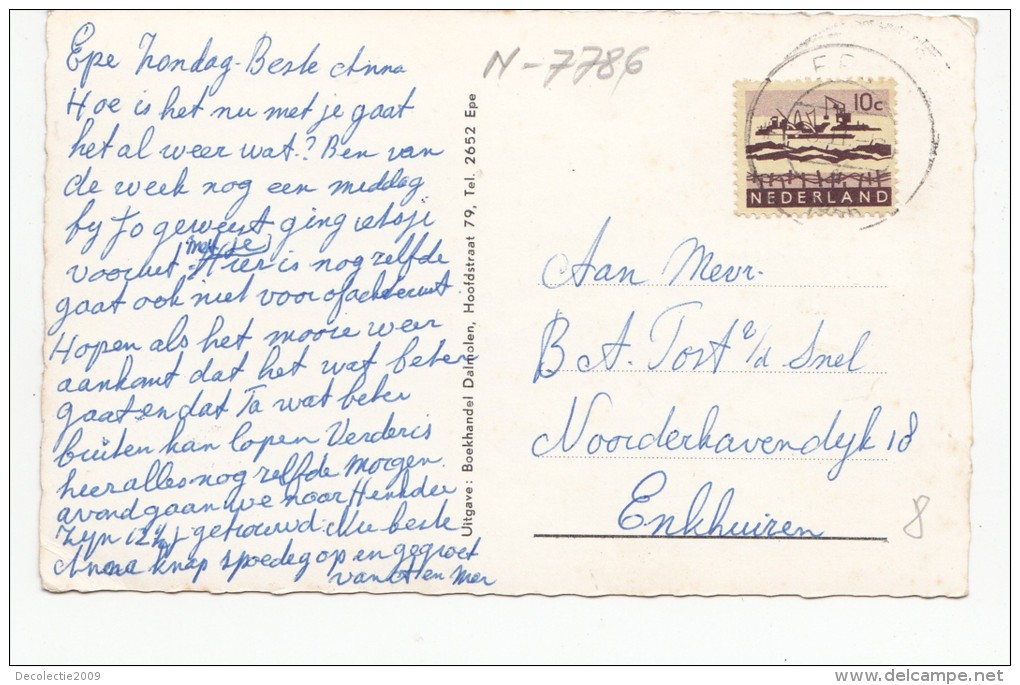 Epe Zondag - Beste Anna
Hoe is het nu met je gaat
het al weer wat? Ben van
de week nog een middag
by Jo geweest ging ietsji
vooruit met je Hier is nog zelfde
gaat ook niet voor of achteruit.
Hopen als het mooie weer
aankomt dat het wat beter
gaat en dat Ta wat beter
buiten kan lopen Verder is
hier alles nog zelfde Morgen
avond gaan we naar
Zyn 12½ j getrouwd. Nu beste
Anna knap spoedeg op en gegroet
van en
N-7786
Uitgave: Boekhandel Dalmolen, Hoofdstraat 79, Tel. 2652 Epe
10c
NEDERLAND
Aan Mevr.
B A. Tost e/d Snel
Noorderhavendyk 18
Enkhuizen
8
Decolectie2009
www.delcampe.net